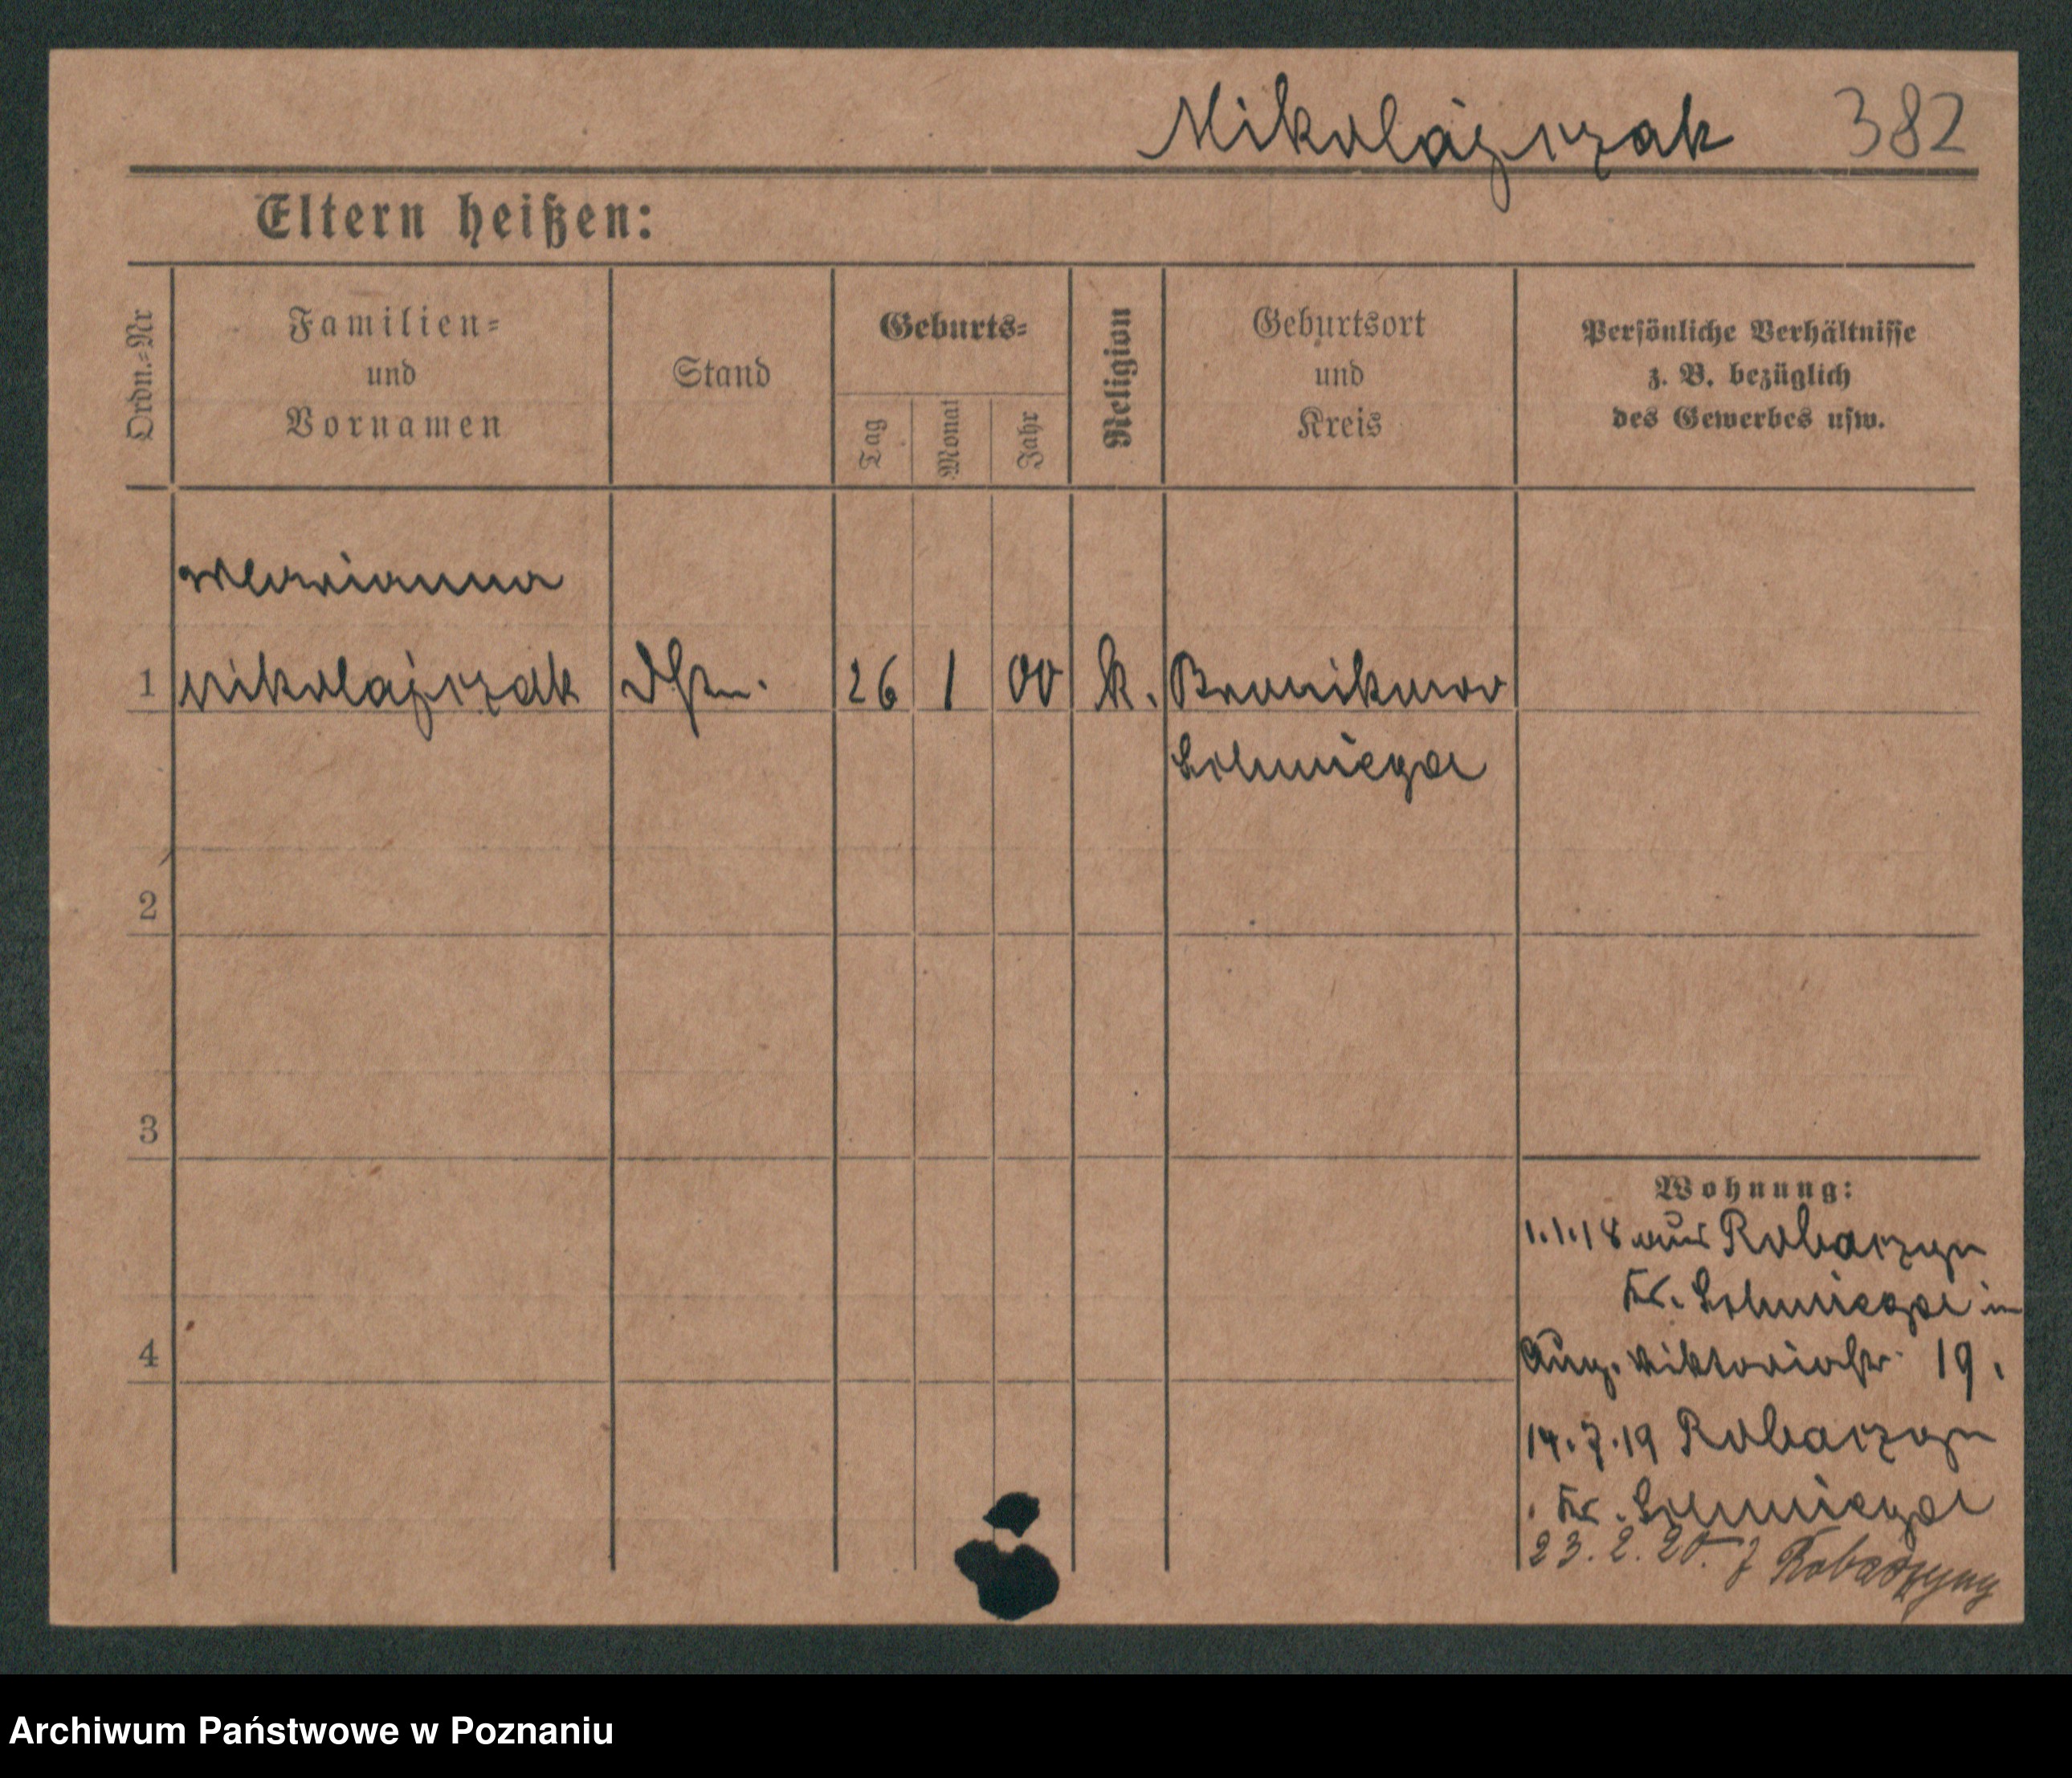 Mikolajczak 382
Eltern heißen:
Ordn.-Nr
Familien-
und
Vornamen
Stand
Geburts-
Tag
Monat
Jahr
Religion
Geburtsort
und
Kreis
Persönliche Verhältnisse
z. B. bezüglich
des Gewerbes usw.
Marianna
1 Mikolajczak 26 1 00 k. Bronikowo
Schmiegel
2
3
4
Wohnung:
1.1.18 aus Robaczyn
Kr. Schmiegel in
Aug. Viktoriastr. 19.
14.7.19 Robaczyn
Kr. Schmiegel
23.2.20. z Robaczyny
Archiwum Państwowe w Poznaniu